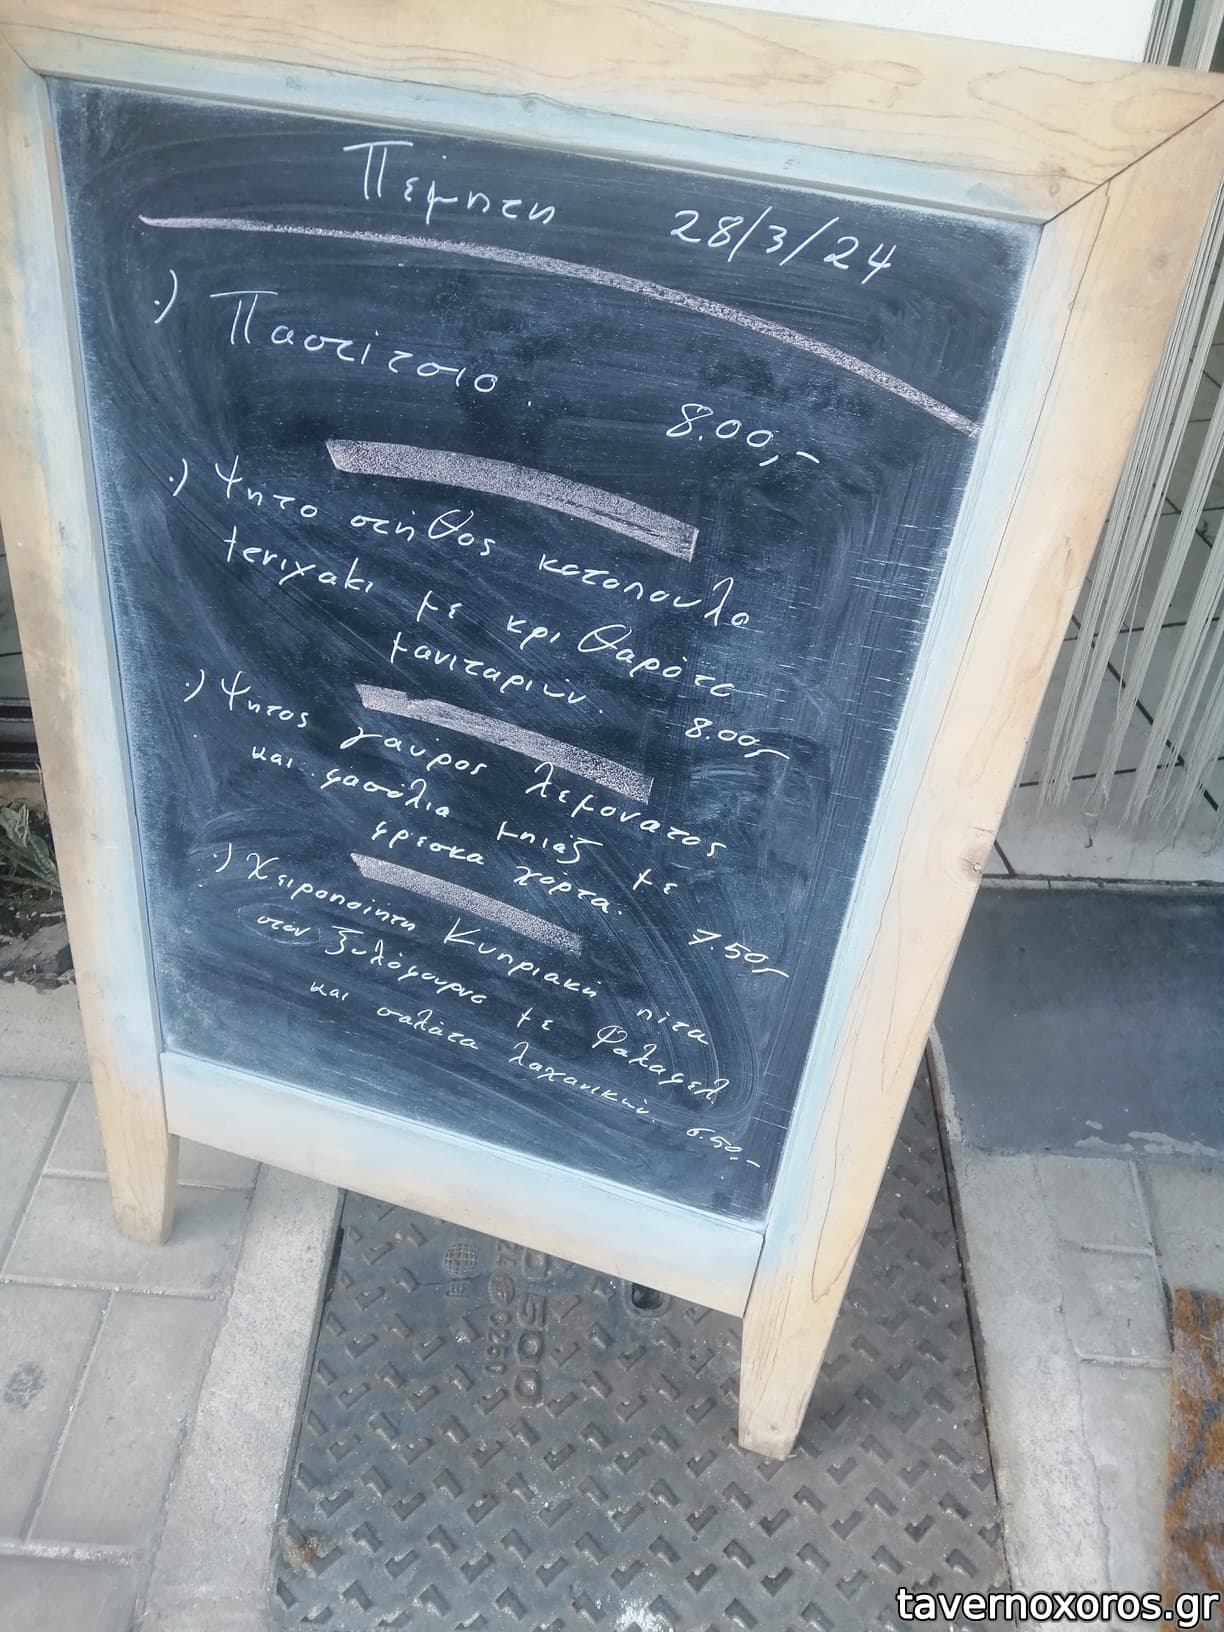 Πέμπτη 28/3/24
.) Παστίτσιο. 8.00,-
.) Ψητο στήθος κοτόπουλο
teriyaki με κριθαρότο
μανιταριών. 8.00,-
.) Ψητος γαύρος λεμονατος
και φασόλια μπιαζ με
φρέσκα χόρτα. 7.50,-
.) Χειροποίητη Κυπριακή πίτα
στον ξυλόφουρνο με Φαλαφελ
και σαλάτα λαχανικών. 6.50,-
tavernoxoros.gr